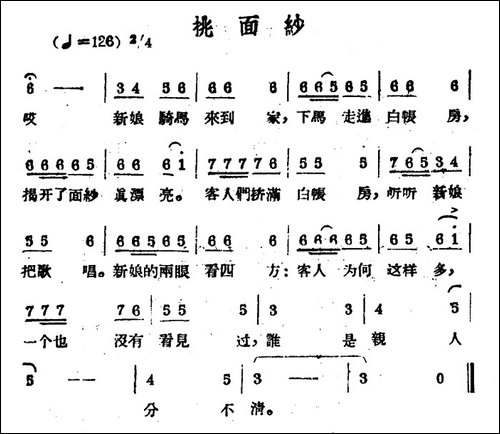 挑面紗
(♩=126) 2/4
6 — | 34 56 | 66 6 | 6665 65 | 66 6 |
哎 新娘騎馬來到 家,下馬走進白帳 房,
66665 | 66 6i | 7777 76 | 55 5 | 765 34 |
揭开了面紗真漂 亮。客人們挤滿白帳 房,听听新娘
55 6 | 6665 65 | 66 6 | 66665 65 | 65 6i |
把歌 唱。新娘的兩眼看四 方:客人为何这样多,
777 76 | 55 5 | 3 3 | 4 5 |
一个也 沒有看見 过,誰 是親 人
5 — | 4 5 | 3 — | 3 0 ‖
分 不 清。